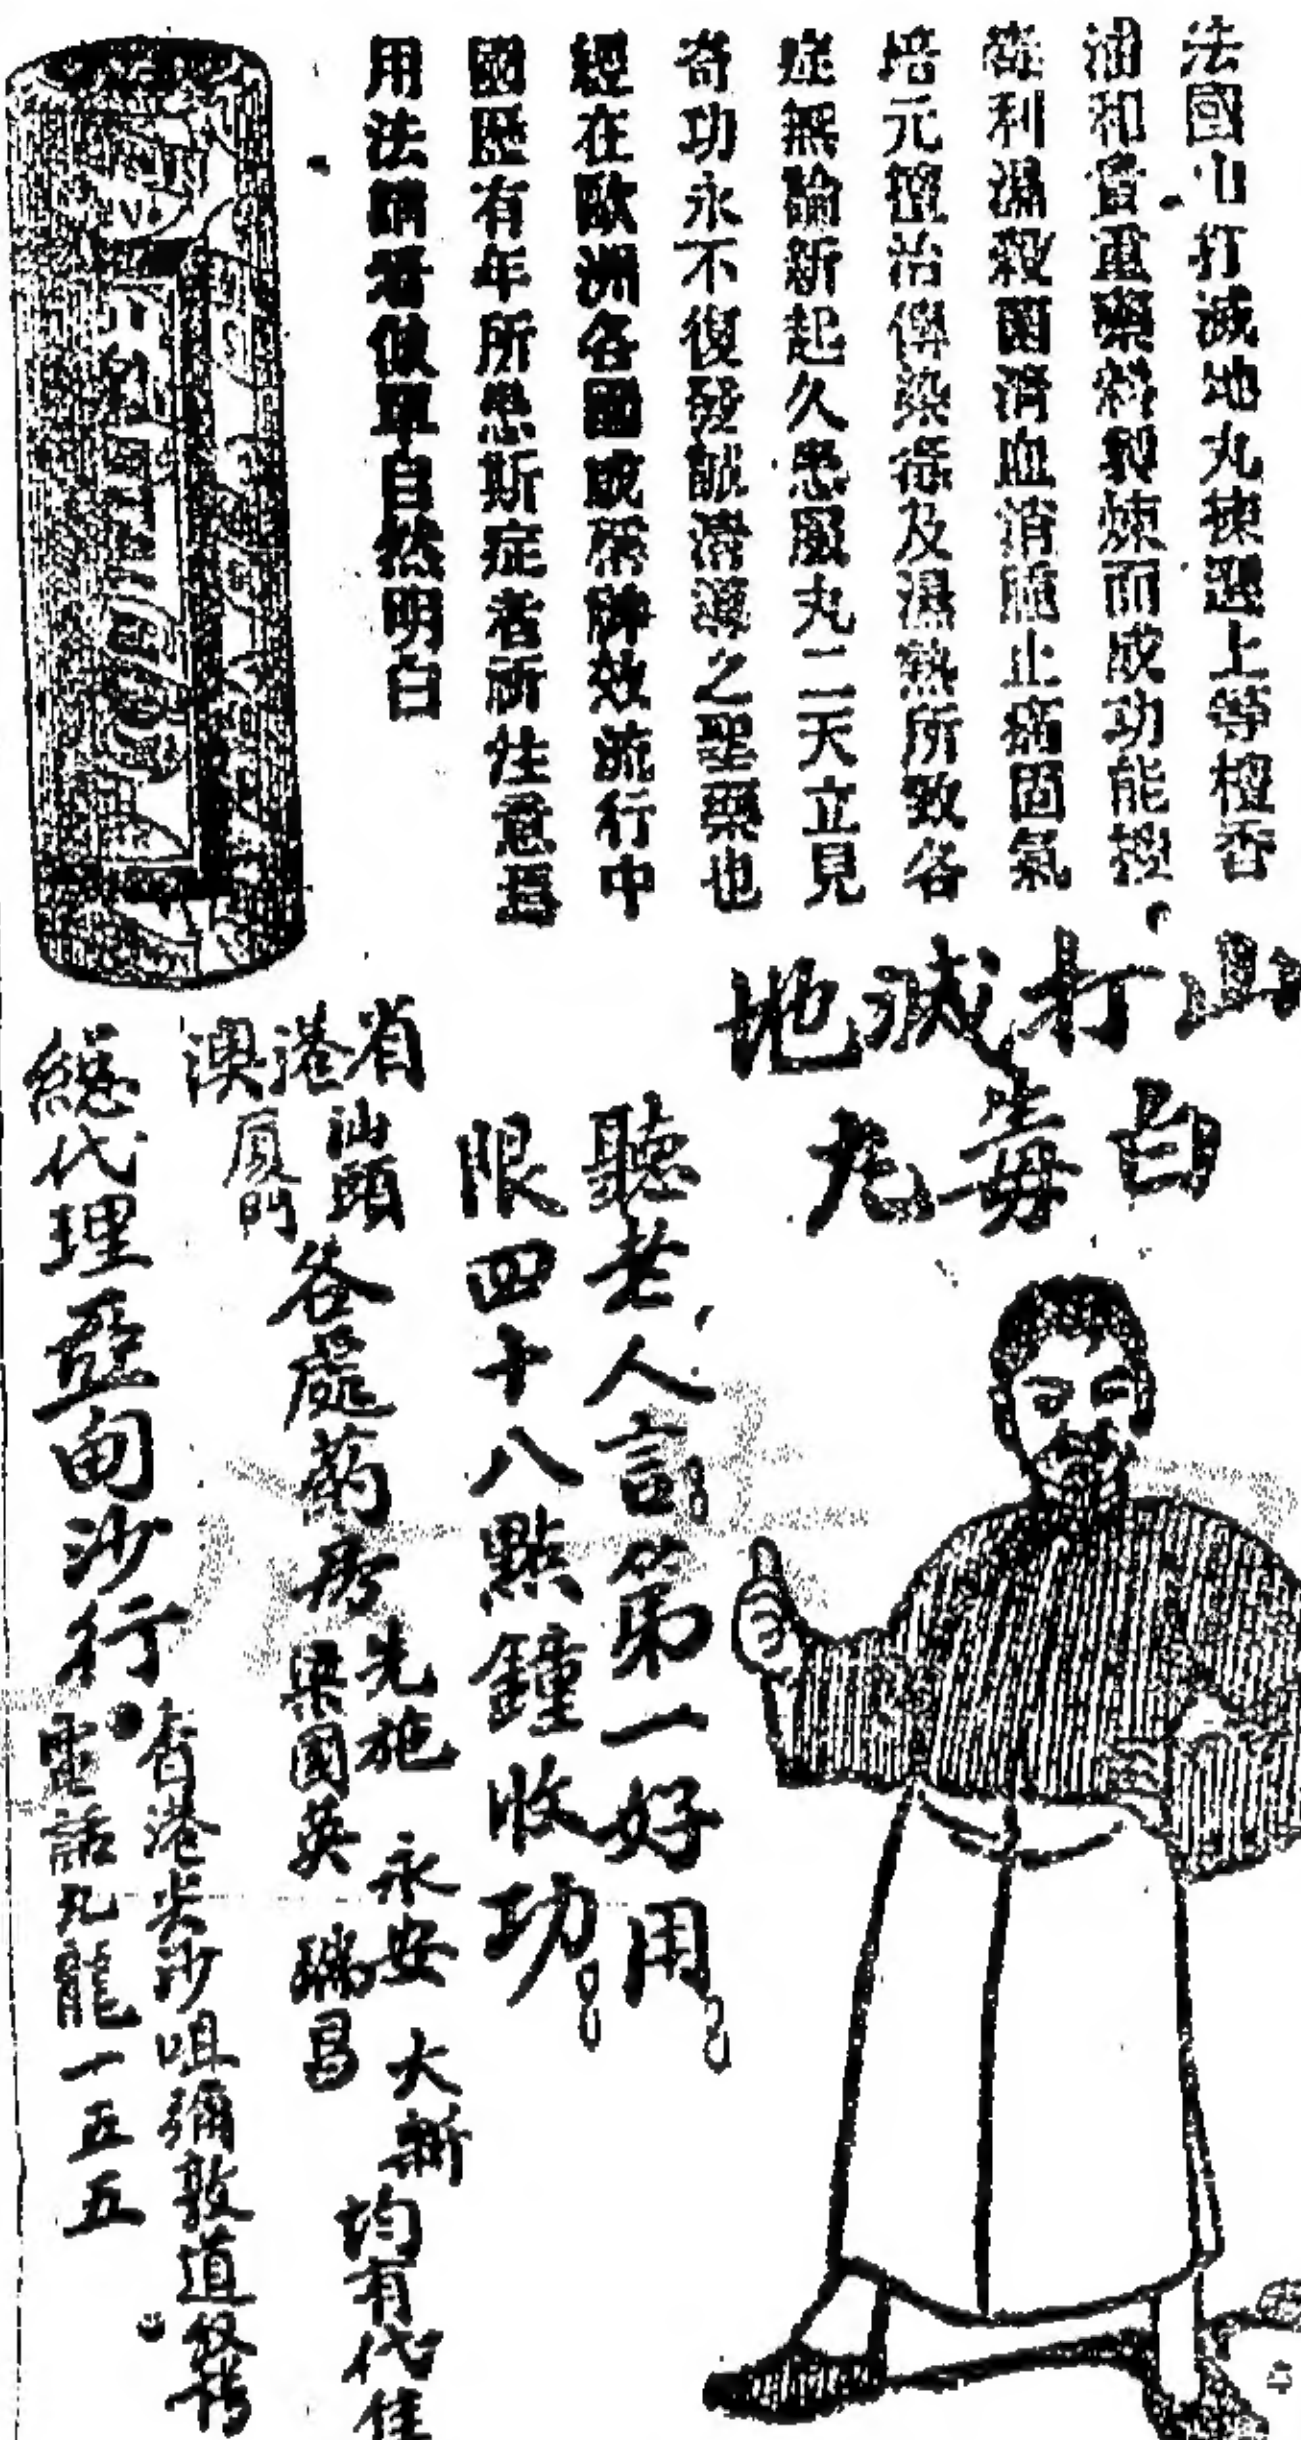 法國山打滅地丸揀選上等檀香
油和貴重藥料製煉而成功能拔
毒利濕殺菌清血消腫止痛固氣
培元蓮治傳染毒及濕熱所致各
症無論新起久患服丸二天立見
奇功永不復發誠濟漢之聖藥也
經在歐洲各國政府牌效流行中
國歷有年所患斯症者所注意焉
用法請看仿單自然明白
山打滅地
白毒丸
聽老人言第一好用
限四十八點鐘收功
省港澳
汕頭
廈門
各處葯房
先施 永安 大新
梁國英 瑞昌
均有代售
總代理亞甸沙行
香港尖沙咀彌敦道
電話九龍一五五